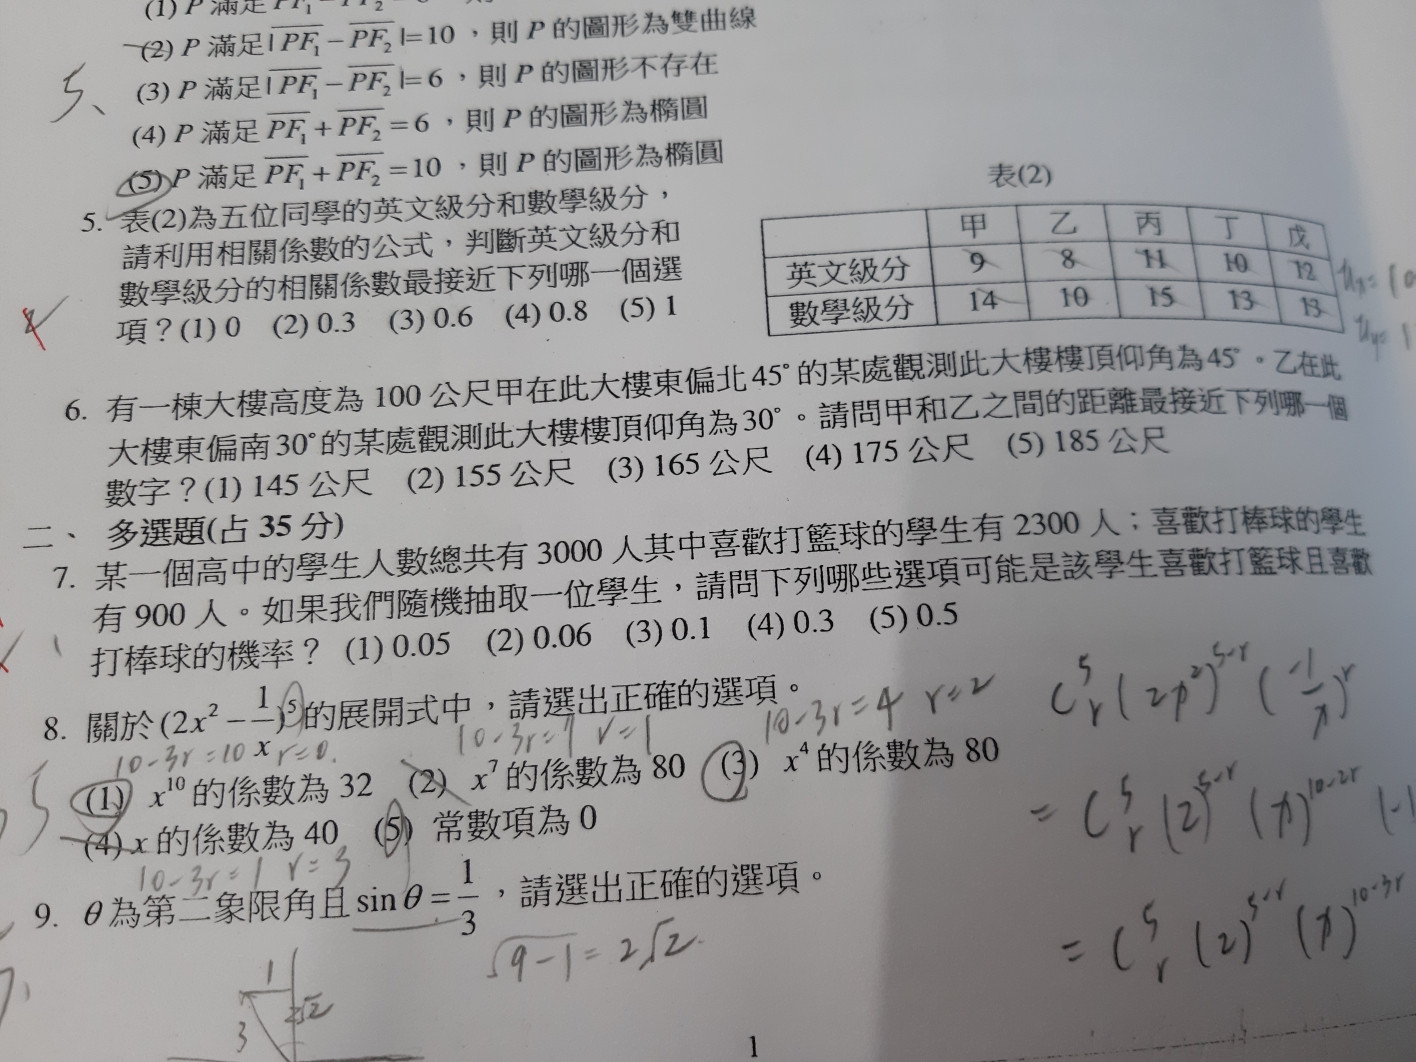 (1) P 滿足
(2) P 滿足| PF₁ − PF₂ |=10 ，則 P 的圖形為雙曲線
(3) P 滿足| PF₁ − PF₂ |= 6 ，則 P 的圖形不存在
5、
(4) P 滿足 PF₁ + PF₂ = 6 ，則 P 的圖形為橢圓
(5) P 滿足 PF₁ + PF₂ =10 ，則 P 的圖形為橢圓
5. 表(2)為五位同學的英文級分和數學級分，
請利用相關係數的公式，判斷英文級分和
數學級分的相關係數最接近下列哪一個選
項？(1) 0 (2) 0.3 (3) 0.6 (4) 0.8 (5) 1
表(2)
甲 乙 丙 丁 戊
英文級分 9 8 11 10 12
數學級分 14 10 15 13 13
6. 有一棟大樓高度為 100 公尺甲在此大樓東偏北 45° 的某處觀測此大樓樓頂仰角為 45° 。乙在此
大樓東偏南 30° 的某處觀測此大樓樓頂仰角為 30° 。請問甲和乙之間的距離最接近下列哪一個
數字？(1) 145 公尺 (2) 155 公尺 (3) 165 公尺 (4) 175 公尺 (5) 185 公尺
二、 多選題(占 35 分)
7. 某一個高中的學生人數總共有 3000 人其中喜歡打籃球的學生有 2300 人；喜歡打棒球的學生
有 900 人。如果我們隨機抽取一位學生，請問下列哪些選項可能是該學生喜歡打籃球且喜歡
打棒球的機率？ (1) 0.05 (2) 0.06 (3) 0.1 (4) 0.3 (5) 0.5
8. 關於 (2x² − 1/x)⁵ 的展開式中，請選出正確的選項。
10-3r=10 r=0. 10-3r=7 r=1 10-3r=4 r=2
(1) x¹⁰ 的係數為 32 (2) x⁷ 的係數為 80 (3) x⁴ 的係數為 80
(4) x 的係數為 40 (5) 常數項為 0
10-3r=1 r=3
9. θ 為第二象限角且 sin θ = 1/3 ，請選出正確的選項。
√9-1 = 2√2.
1
2√2
3
1